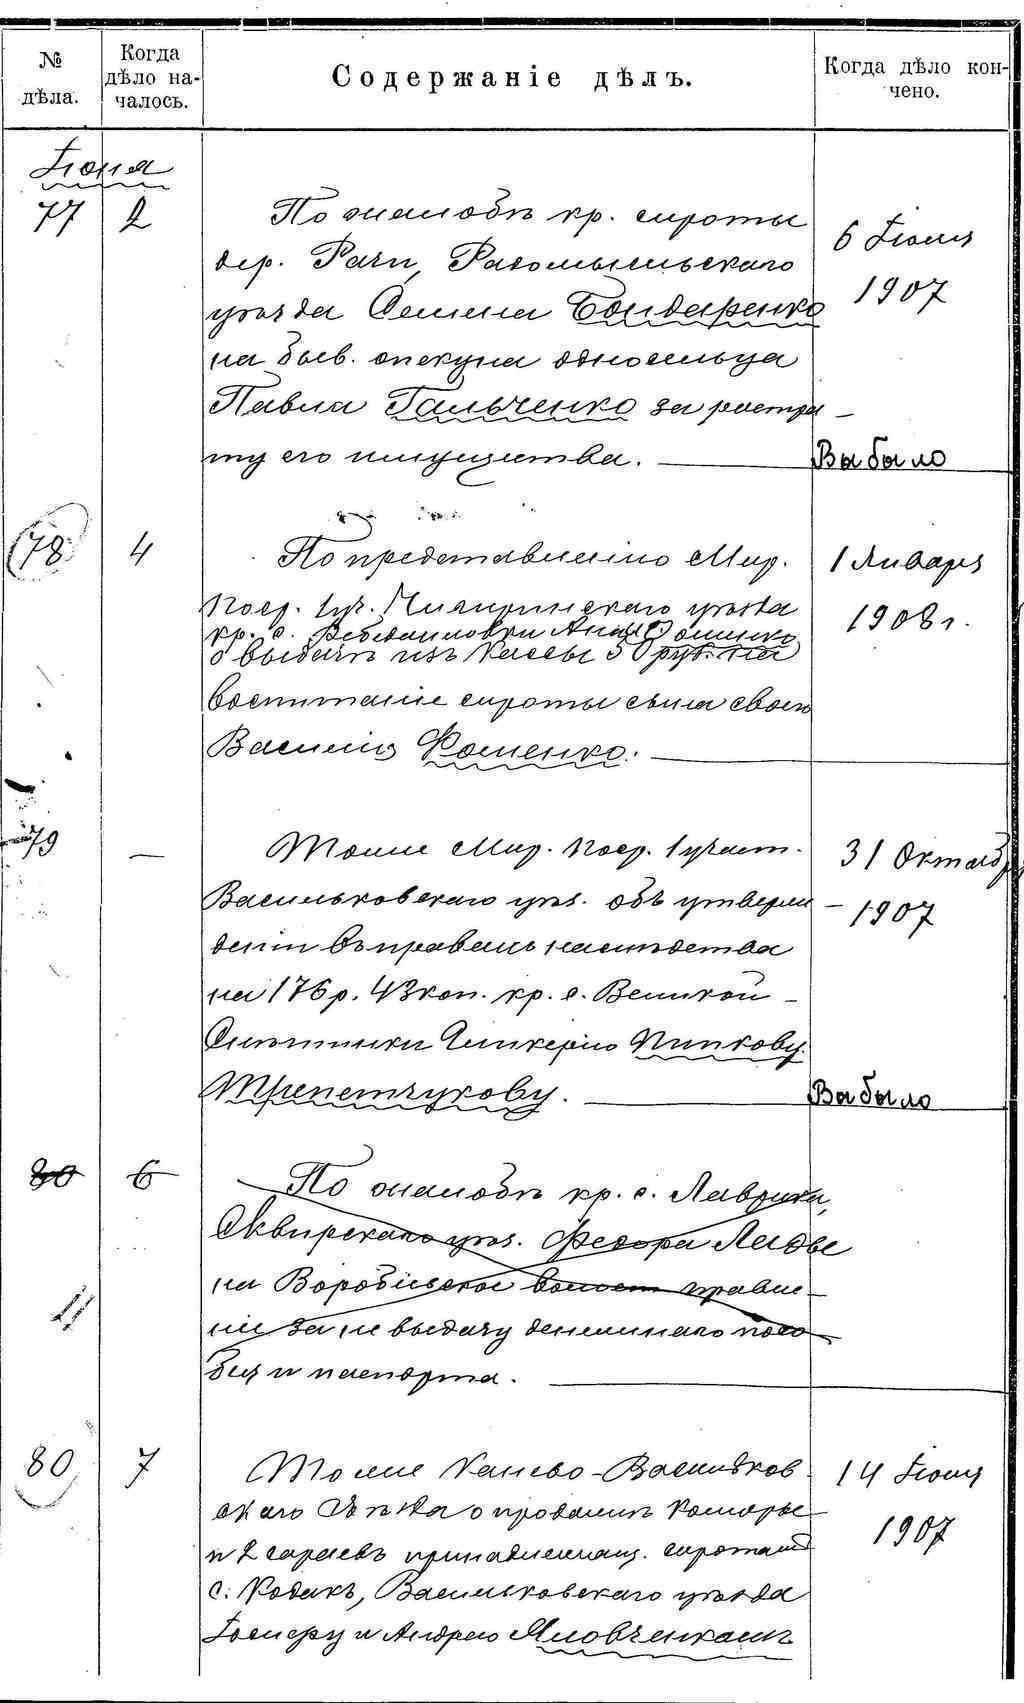 № дѣла.
Когда дѣло началось.
Содержаніе дѣлъ.
Когда дѣло кончено.
Іюня
77
2
По жалобѣ кр. сироты
дер. Рачи, Радомысльскаго
уѣзда Семена Бондаренко
на бывш. опекуна односельца
Павла Гальченко за растра
ту его имущества.
6 Іюня
1907
Выбыло
78
4
По представленію Мир.
Поср. 1 уч. Чигиринскаго уѣзда
кр. с.
о выдачѣ изъ кассы 50 руб. на
воспитаніе сироты сына своего
Василія Фоменко.
1 Января
1908 г.
79
—
Тоже Мир. Поср. 1 участ.
Васильковскаго уѣз. объ утверж
деніи въ правахъ наслѣдства
на 176 р. 43 коп. кр. с. Великой
31 Октября
1907
Выбыло
80
6
По жалобѣ кр. с. Лаврики,
Сквирскаго уѣз. Федора
на волост правле
ніе за не выдачу денежнаго посо
бія и паспорта.
80
7
Тоже Канево-Васильков
скаго Съѣзда о продажѣ коморы
и 2 сараевъ принадлежащ. сиротамъ
с. Кодакъ, Васильковскаго уѣзда
Іосифу и Андрею Яловченкамъ
14 Іюня
1907